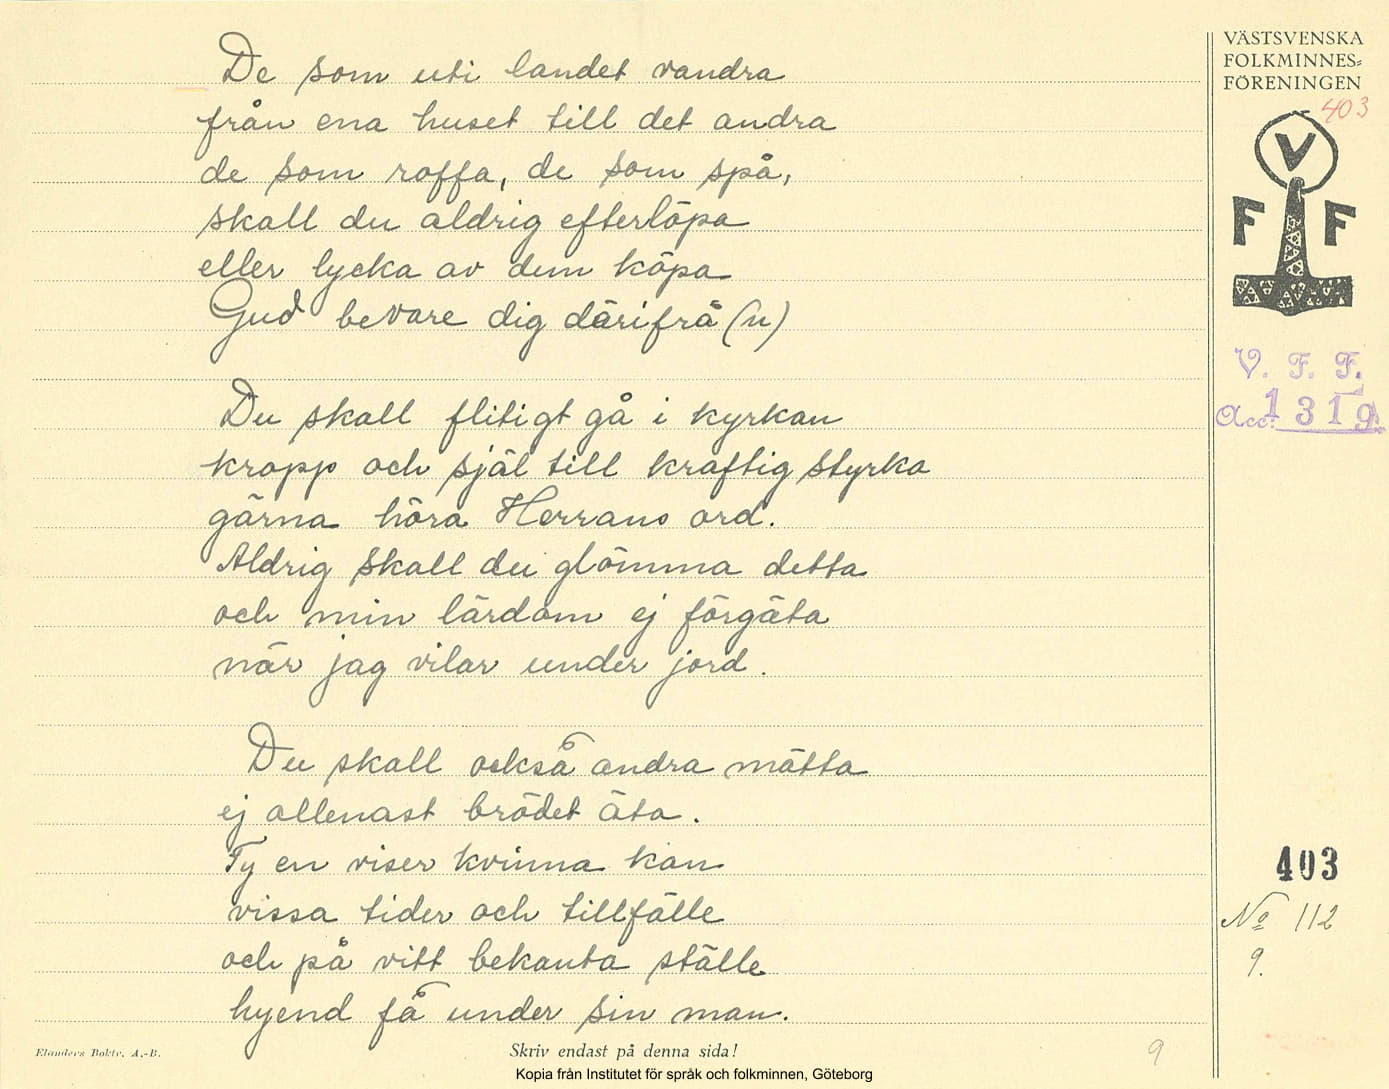 De som uti landet vandra
från ena huset till det andra
de som roffa, de som spå,
skall du aldrig efterlöpa
eller lycka av dem köpa
Gud bevare dig därifrå (n)
Du skall flitigt gå i kyrkan
kropp och själ till kraftig styrka
gärna höra Herrans ord.
Aldrig skall du glömma detta
och min lärdom ej förgäta
när jag vilar under jord.
Du skall också andra mätta
ej allenast brödet äta.
Ty en viser kvinna kan
vissa tider och tillfälle
och på vitt bekanta ställe
hyend få under sin man.
VÄSTSVENSKA
FOLKMINNES-
FÖRENINGEN
403
V
F F
V. F. F.
Acc. 1319
403
No 112
9.
Elanders Boktr. A.-B.
Skriv endast på denna sida!
9
Kopia från Institutet för språk och folkminnen, Göteborg